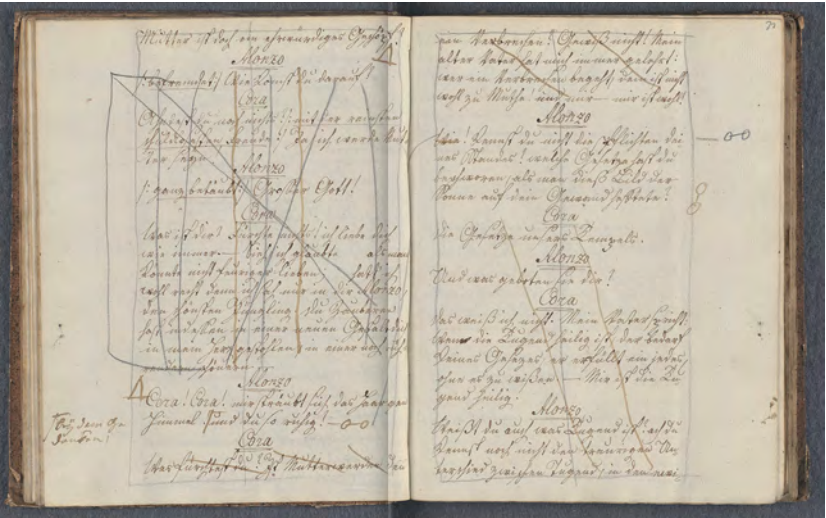 Mutter ist doch ein ehrwürdiges Geschöpf
Alonzo
/: befremdet :/ Wie komst du darauf?
Cora
Ahndest du noch nichts? /: mit der reinsten
schuldlosen Freude :/ Ja ich werde Mut-
ter seyn.
Alonzo
/: ganz betäubt :/ Großer Gott!
Cora
Was ist dir? Fürchte nichts! ich liebe dich
wie immer — Sieh ich glaubte
konnte nicht feuriger lieben,
wohl recht denn ich sah nur in dir Alonzo,
den schönsten Jüngling. Du
hast indessen in einer neuen Gestalt dich
in mein Herz gestohlen, in einer noch
schönern
Alonzo
Cora! Cora! mir sträubt sich das Haar gen
Himmel! und du so ruhig!
bey dem Ge-
danken!
Cora
Was fürchtest du? Ist Mutter werden denn
ein Verbrechen? Gewiß nicht! Mein
alter Vater hat mich immer gelehrt:
wer ein Verbrechen begeht, dem ist nicht
wohl zu Muthe! und mir — mir ist wohl!
Alonzo
Wie! kennst du nicht die Pflichten dei-
nes Standes? welche Gesetze hast du
beschworen, als man dieß Bild der
Sonne auf dein Gewand heftete?
Cora
Die Gesetze unsers Tempels.
Alonzo
Und was geboten sie dir?
Cora
Das weiß ich nicht. Mein Vater spricht:
Wem die Tugend heilig ist, der bedarf
keines Gesetzes, er erfüllt ein jedes,
ohne es zu wißen — Mir ist die Tu-
gend heilig.
Alonzo
Weißt du auch was Tugend ist? ach du
kennst noch nicht den traurigen Un-
terschied zwischen Tugend, in den